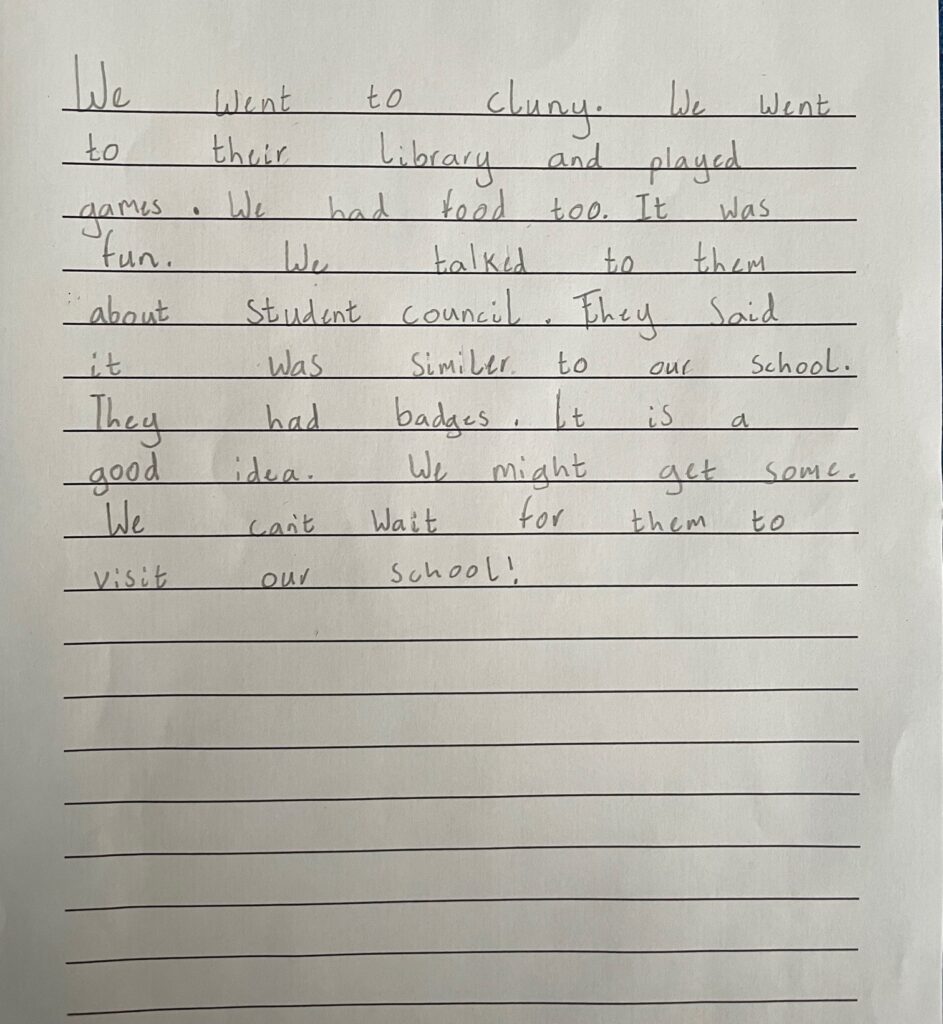 We went to cluny. We went
to their library and played
games. We had food too. It was
fun. We talked to them
about student council. They said
it was similer to our school.
They had badges. It is a
good idea. We might get some.
We can't wait for them to
visit our school!